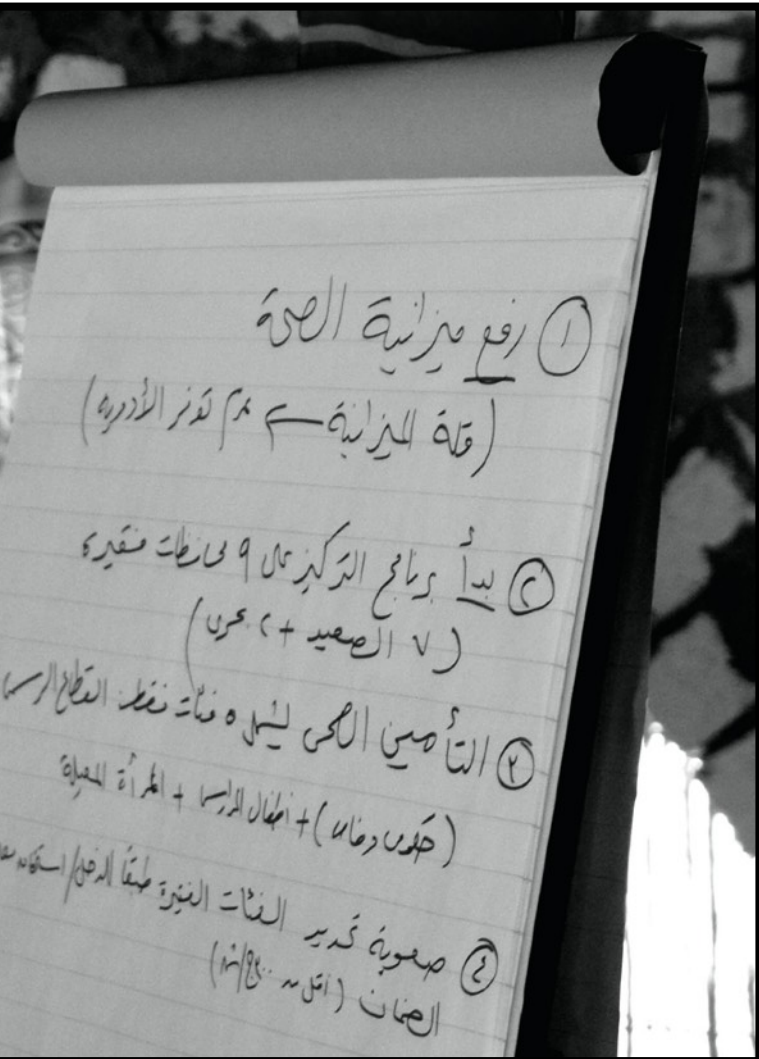 ١ رفع ميزانية الصحة
(قلة الميزانية ← عدم توفر الأدوية)
٢ بدأ برنامج التركيز على ٩ محافظات فقيرة
(٧ الصعيد + ٢ بحرى)
٣ التأمين الصحى ليشمل ٥ فئات فقط القطاع الرسمى
(حكومى وخاص) + أطفال المدارس + المرأة المعيلة
٤ صعوبة تحديد الفئات الفقيرة طبقاً للدخل/استحقاق
الضمان (أقل من ج/شهر)